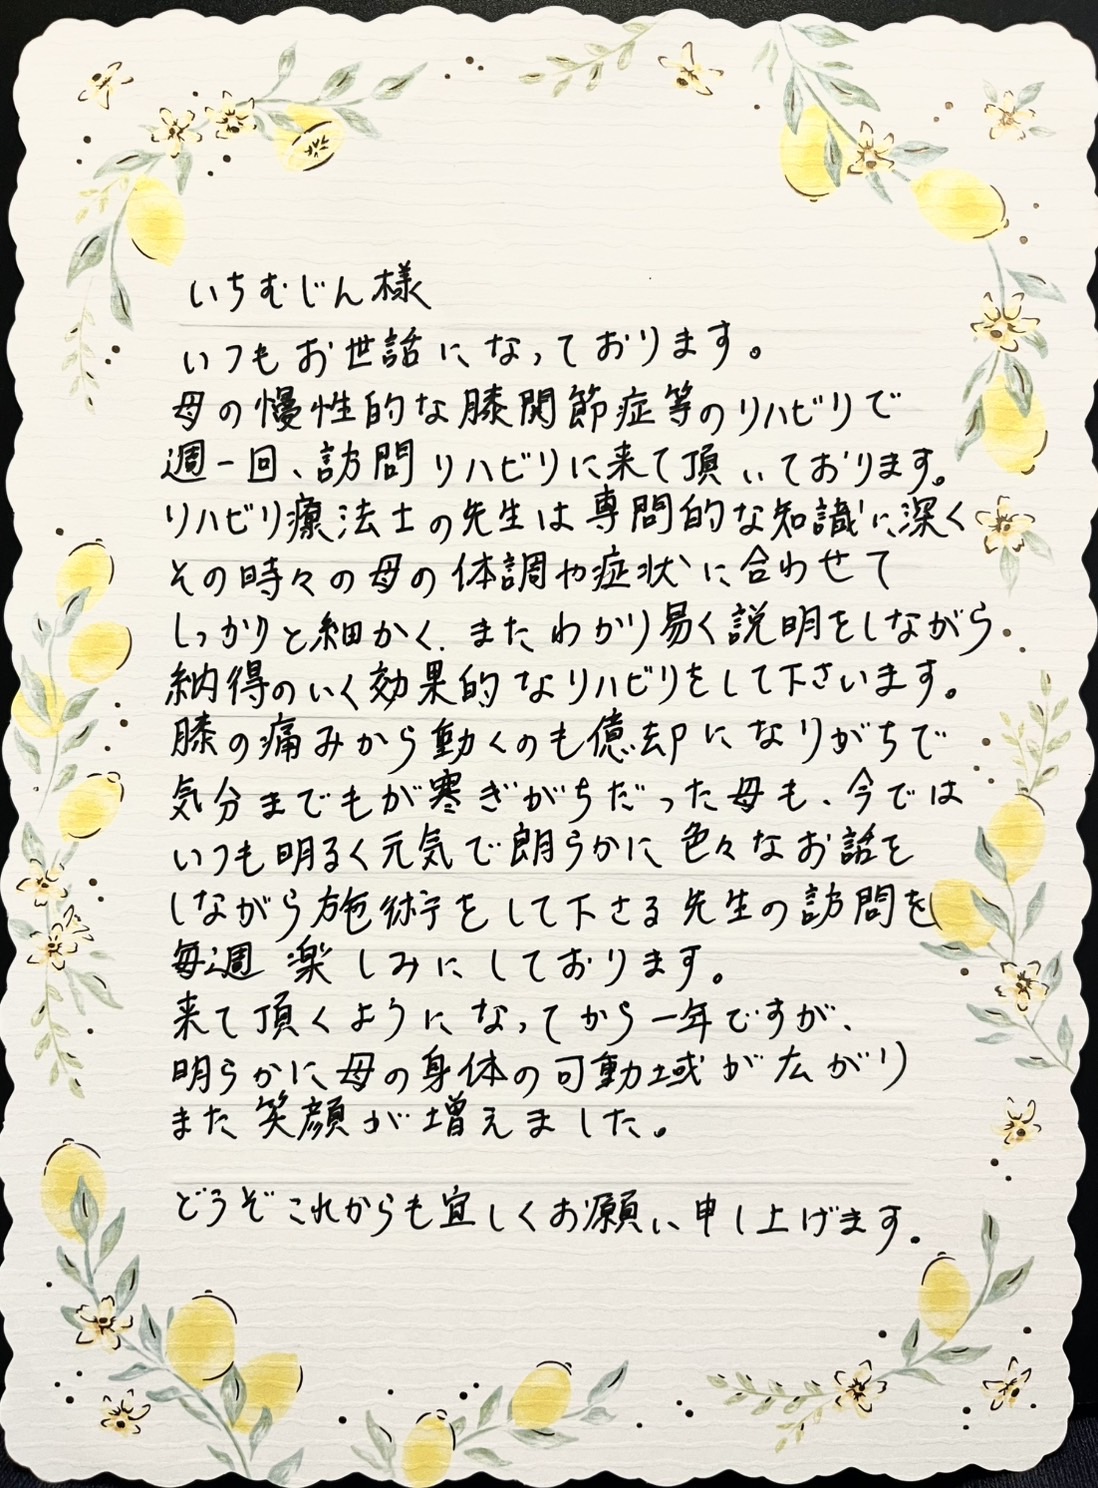 いちむじん様
いつもお世話になっております。
母の慢性的な膝関節症等のリハビリで
週一回、訪問リハビリに来て頂いております。
リハビリ療法士の先生は専門的な知識に深く
その時々の母の体調や症状に合わせて
しっかりと細かく、またわかり易く説明をしながら
納得のいく効果的なリハビリをして下さいます。
膝の痛みから動くのも億却になりがちで
気分までもが塞ぎがちだった母も、今では
いつも明るく元気で朗らかに色々なお話を
しながら施術を して下さる先生の訪問を
毎週 楽しみにしております。
来て頂くようになってから一年ですが、
明らかに母の身体の可動域が広がり
また笑顔が増えました。
どうぞこれからも宜しくお願い申し上げます。